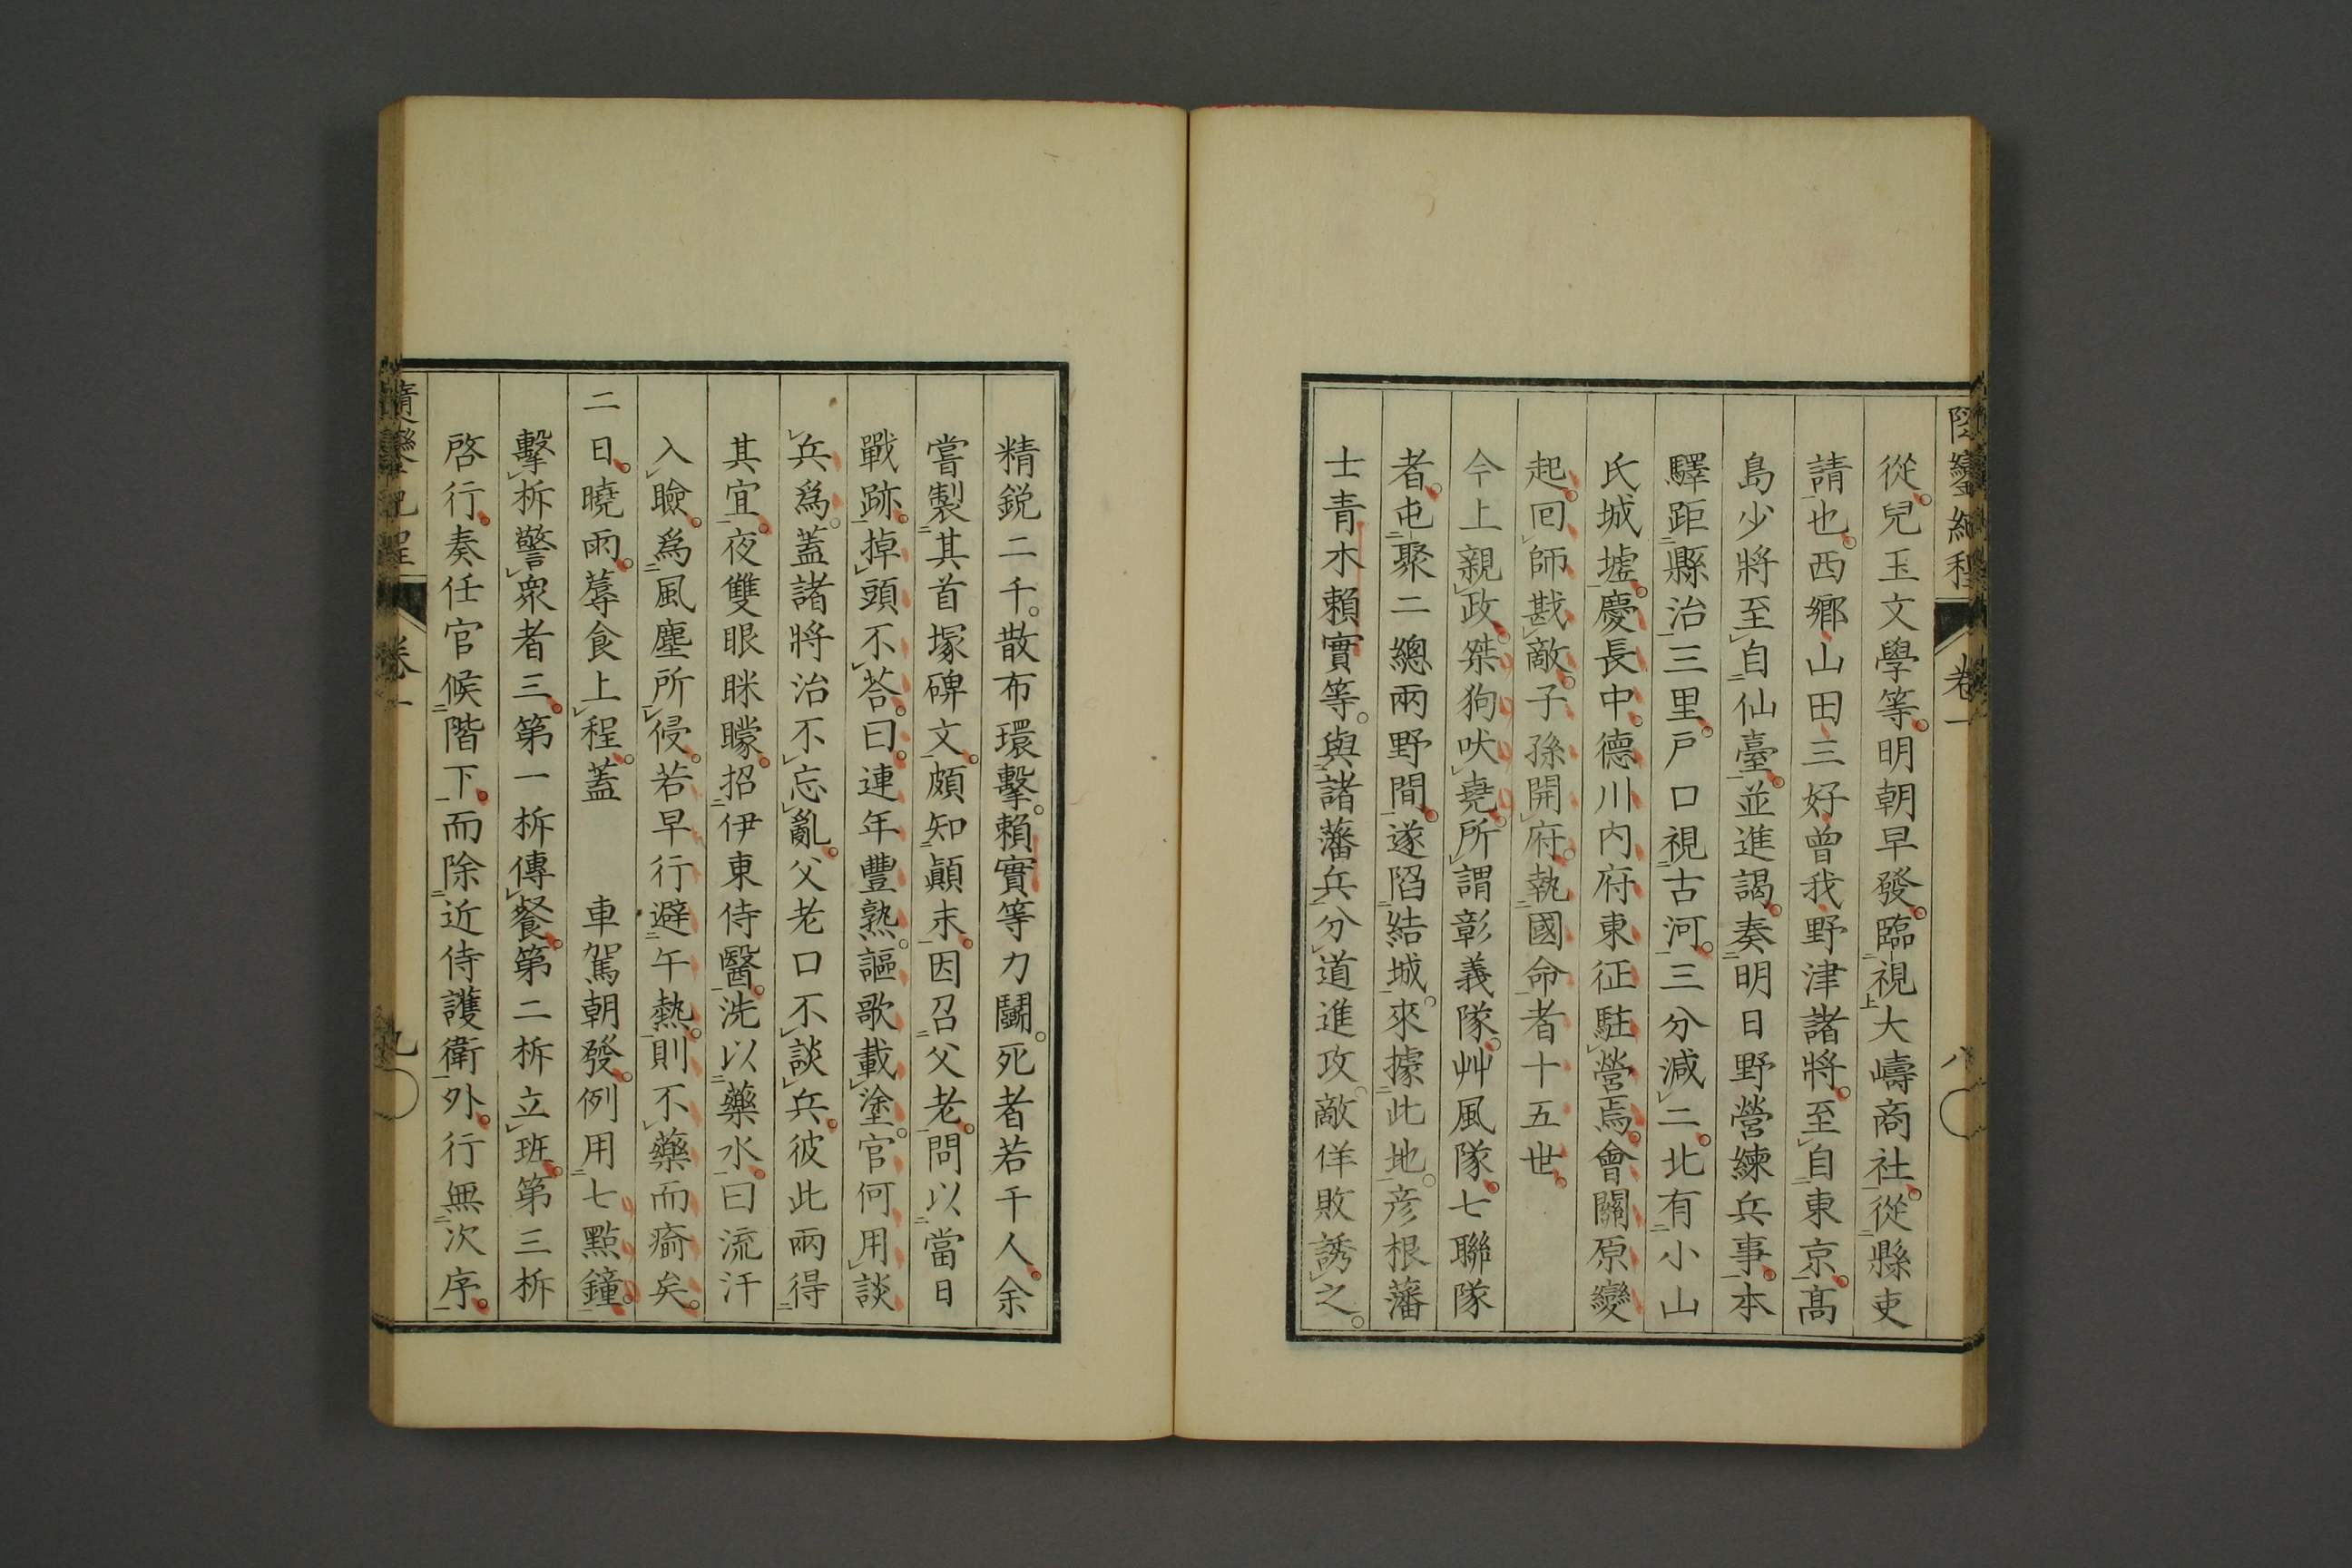 從兒玉文學等。明朝早發。臨視大嶹商社。從縣吏
請也。西鄉山田三好曾我野津諸將。至自東京。髙
島少將至自仙臺。並進謁。奏明日野營練兵事。本
驛距縣治三里。戶口視古河。三分減二。北有小山
氏城墟。慶長中。德川內府東征駐營焉。會關原變
起。回師戡敵。子孫開府。執國命者十五世。
今上親政。桀狗吠堯。所謂彰義隊。艸風隊。七聯隊
者。屯聚二總兩野間。遂陷結城。來據此地。彦根藩
士青木賴實等。與諸藩兵分道進攻。敵佯敗誘之。
卷一
八
精銳二千。散布環擊。賴實等力鬭。死者若干人。余
嘗製其首塚碑文。頗知顚末。因召父老。問以當日
戰跡。掉頭不荅。曰。連年豐熟。謳歌載塗。官何用談
兵爲。蓋諸將治不忘亂。父老口不談兵。彼此兩得
其宜。夜雙眼眯矇。招伊東侍醫。洗以藥水。曰流汗
入瞼。爲風塵所侵。若早行避午熱。則不藥而癒矣。
二日。曉雨。蓐食上程。蓋 車駕朝發。例用七點鐘。
擊柝警衆者三。第一柝傳餐。第二柝立班。第三柝
啓行。奏任官候階下。而除近侍護衛外。行無次序。
卷一
九